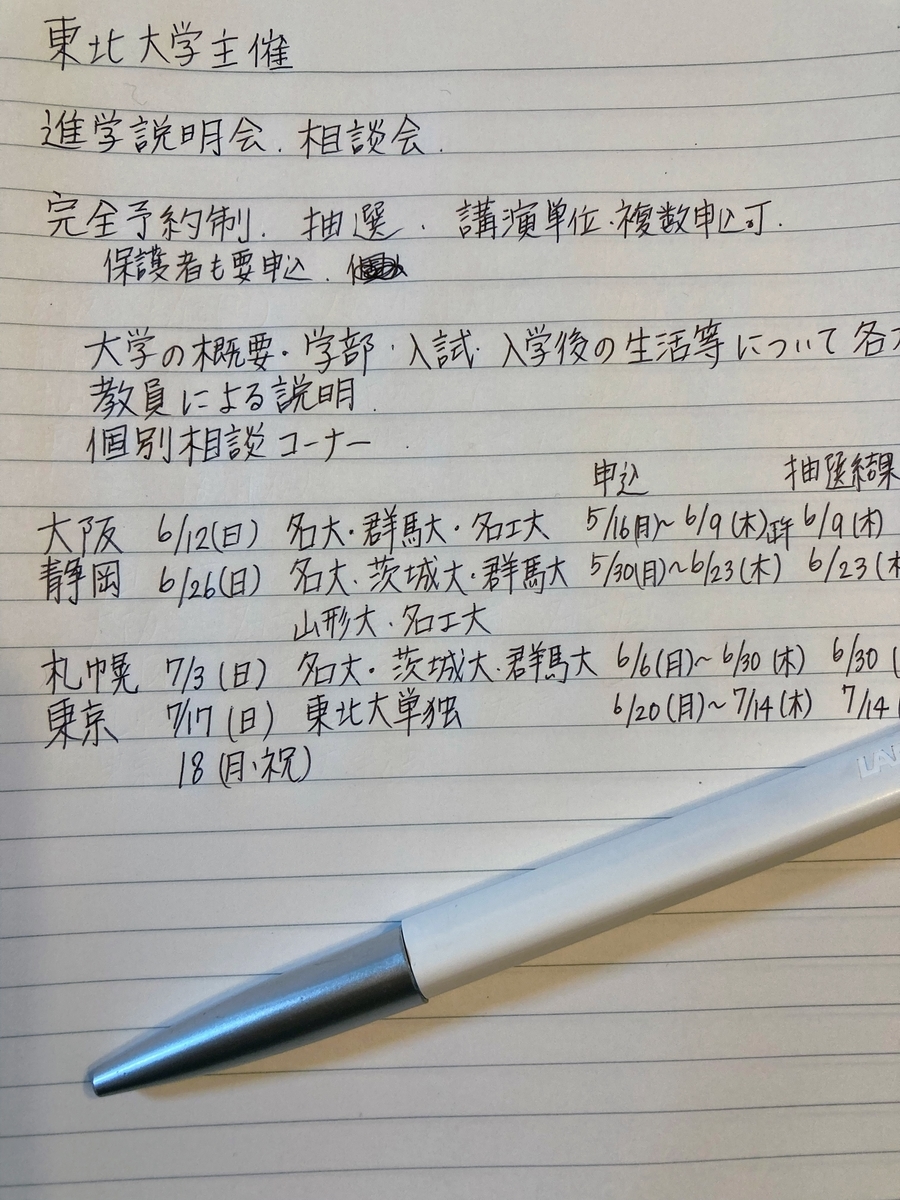 東北大学主催
進学説明会．相談会．
完全予約制．抽選．講演単位・複数申込可．
保護者も要申込．
大学の概要・学部・入試・入学後の生活等について各
教員による説明．
個別相談コーナー
申込 抽選結果
大阪 6/12(日) 名大・群馬大・名工大 5/16(月)～6/9(木)正午 6/9(木)
静岡 6/26(日) 名大．茨城大・群馬大 5/30(月)～6/23(木) 6/23(木
山形大・名工大
札幌 7/3(日) 名大・茨城大．群馬大 6/6(月)～6/30(木) 6/30(
東京 7/17(日) 東北大単独 6/20(月)～7/14(木) 7/14(
18(月・祝)